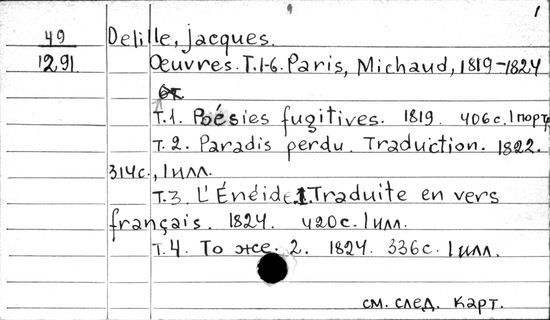 1
49
1291
Delille, Jacques.
Œuvres. T.1-6. Paris, Michaud, 1819-1824
6т.
T.1. Poésies fugitives. 1819. 406с. 1 портр
T.2. Paradis perdu. Traduction. 1822.
314с., 1 илл.
T.3. L'Énéide. 1. Traduite en vers
français. 1824. 420с. 1 илл.
T.4. То же. 2. 1824. 336с. 1 илл.
см. след. карт.